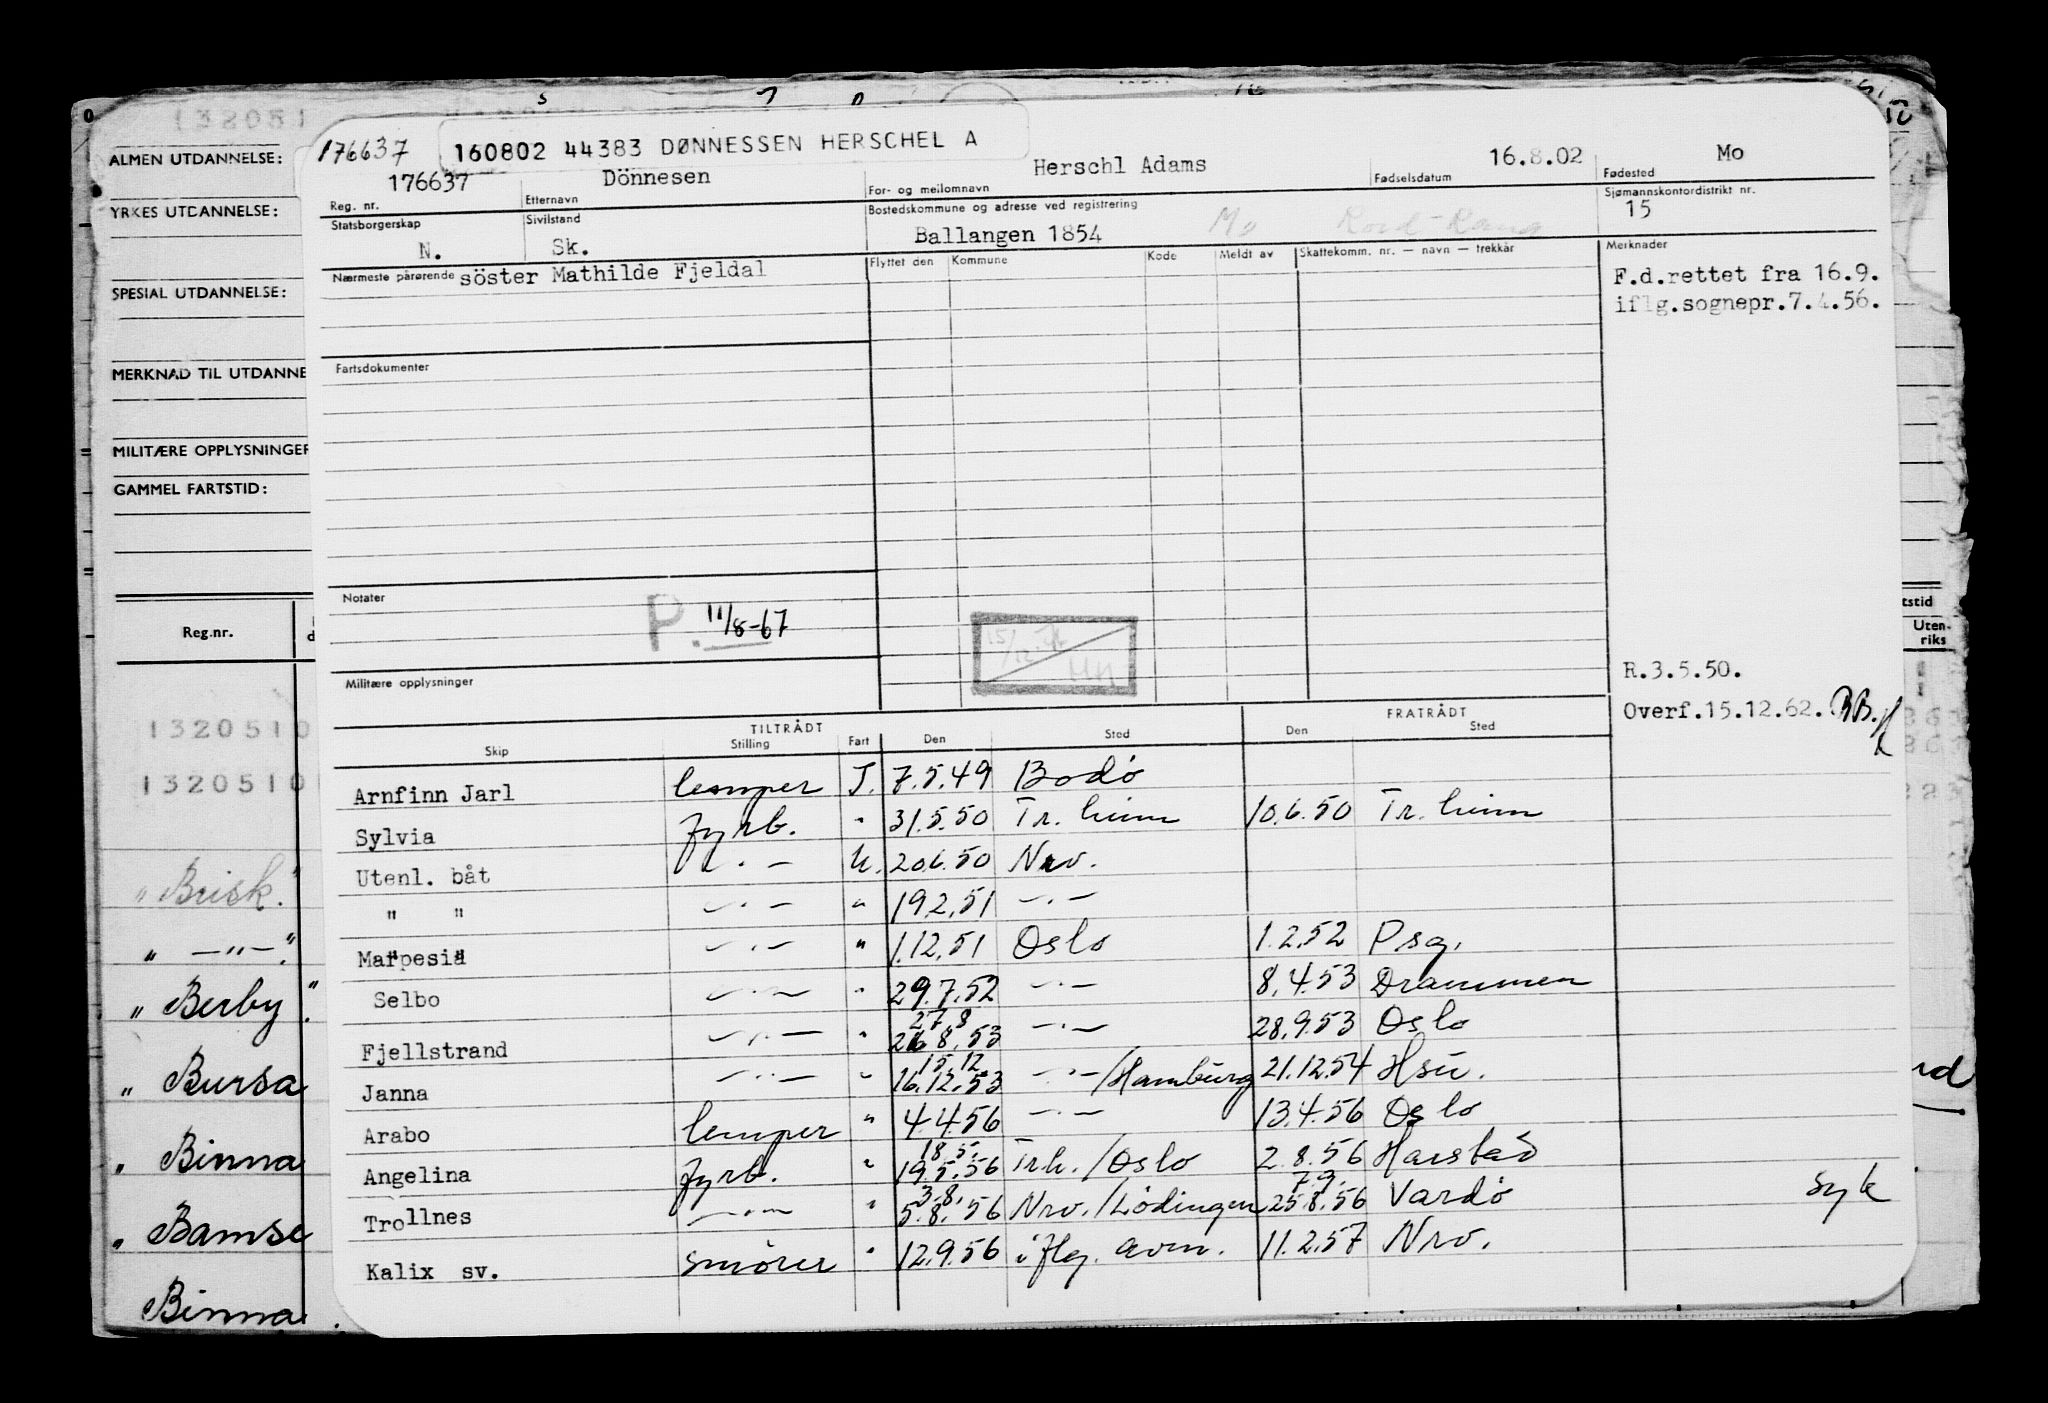 176637 160802 44383 DØNNESSEN HERSCHEL A
ALMEN UTDANNELSE:
176637 Dönnesen Herschl Adams 16.8.02 Mo
Reg. nr. Etternavn For- og mellomnavn Fødselsdatum Fødested
YRKES UTDANNELSE:
Statsborgerskap Sivilstand Bostedskommune og adresse ved registrering Sjømannskontordistrikt nr.
N. Sk. Ballangen 1854 Mo 15
Nærmeste pårørende söster Mathilde Fjeldal Flyttet den Kommune Kode Meldt av Skattekomm. nr. — navn — trekkår Merknader
SPESIAL UTDANNELSE:
F.d.rettet fra 16.9.
iflg.sognepr.7.4.56.
MERKNAD TIL UTDANNE
Fartsdokumenter
MILITÆRE OPPLYSNINGER
GAMMEL FARTSTID:
Notater P. 11/8-67
Reg.nr.
Uten-
riks
15/12
Militære opplysninger
R.3.5.50.
Overf.15.12.62. BB.
TILTRÅDT FRATRÅDT
Skip Stilling Fart Den Sted Den Sted
1320510
132051
Arnfinn Jarl lemper J. 7.5.49 Bodö
Sylvia fyrb. " 31.5.50 Tr.heim 10.6.50 Tr.heim
Utenl. båt — " — U. 20.6.50 Nrv.
" " — " — " 19.2.51 — " —
Marpesia — " — " 1.12.51 Oslo 1.2.52 Psg.
Selbo — " — " 29.7.52 — " — 8.4.53 Drammen
27.8
Fjellstrand — " — " 26.8.53 — " — 28.9.53 Oslo
15.12
Janna — " — " 16.12.53 — " — /Hamburg 21.12.54 Hsu.
Arabo lemper " 4.4.56 — " — 13.4.56 Oslo
18.5.
Angelina fyrb. " 19.5.56 Trh./Oslo 2.8.56 Harstad
3.8. 7.9.
Trollnes — " — " 5.8.56 Nrv./Lödingen 25.8.56 Vardö syk
Kalix sv. smörer " 12.9.56 iflg. avm. 11.2.57 Nrv.
" Brisk."
" — " — "
" Berby"
" Bursa
" Binna
" Bamse
Binna